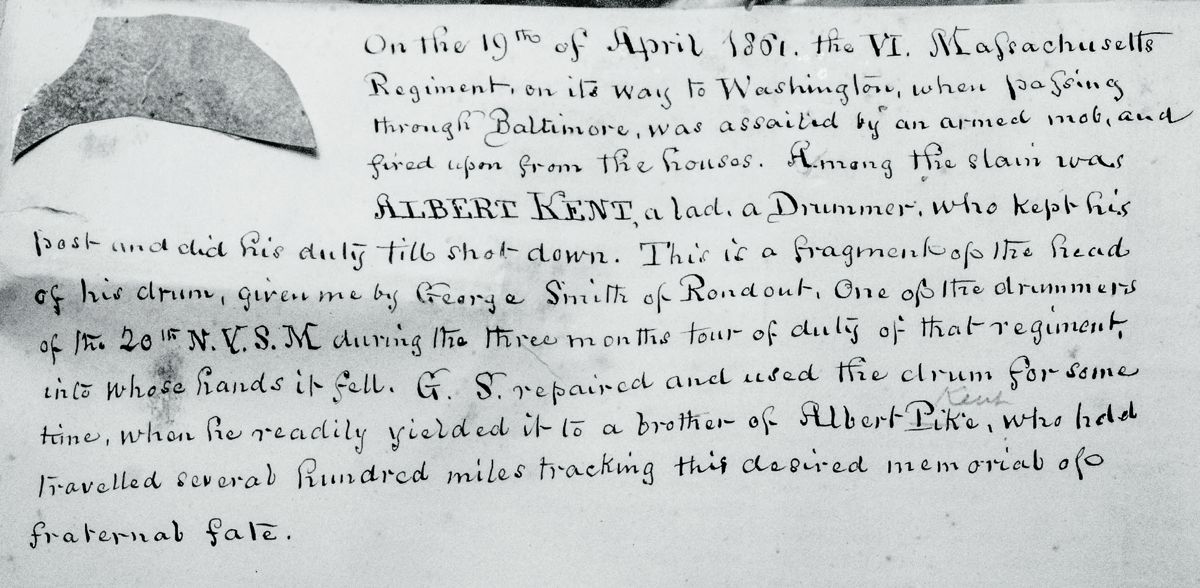 On the 19th of April 1861. the VI. Massachusetts
Regiment, on its way to Washington, when passing
through Baltimore, was assailed by an armed mob, and
fired upon from the houses. Among the slain was
ALBERT KENT, a lad, a Drummer, who kept his
post and did his duty till shot down. This is a fragment of the head
of his drum, given me by George Smith of Rondout, One of the drummers
of the 20th N.Y.S.M during the three months tour of duty of that regiment,
into whose hands it fell. G. S. repaired and used the drum for some
Kent
time, when he readily yielded it to a brother of Albert Pike, who had
travelled several hundred miles tracking this desired memorial of
fraternal fate.